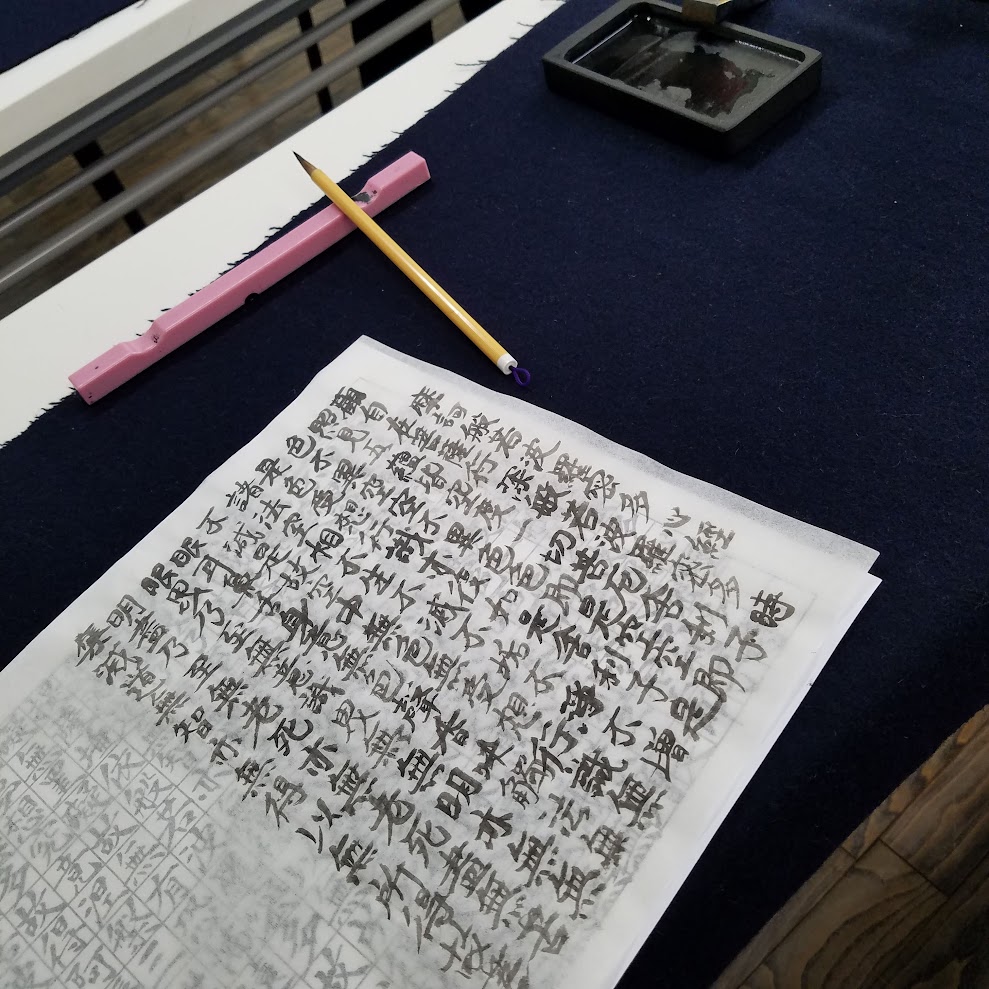 摩訶般若波羅蜜多心経
觀自在菩薩行深般若波羅蜜多時
照見五蘊皆空度一切苦厄舎利子
色不異空空不異色色即是空空即
是色受想行識亦復如是舎利子是
諸法空相不生不滅不垢不淨不増
不減是故空中無色無受想行識無
眼耳鼻舌身意無色聲香味觸法無
眼界乃至無意識界無無明亦無無
明盡乃至無老死亦無老死盡無苦
集滅道無智亦無得以無所得故菩